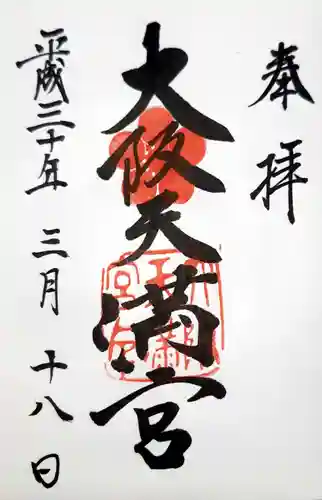 奉拝
大阪天満宮
平成三十年 三月 十八日